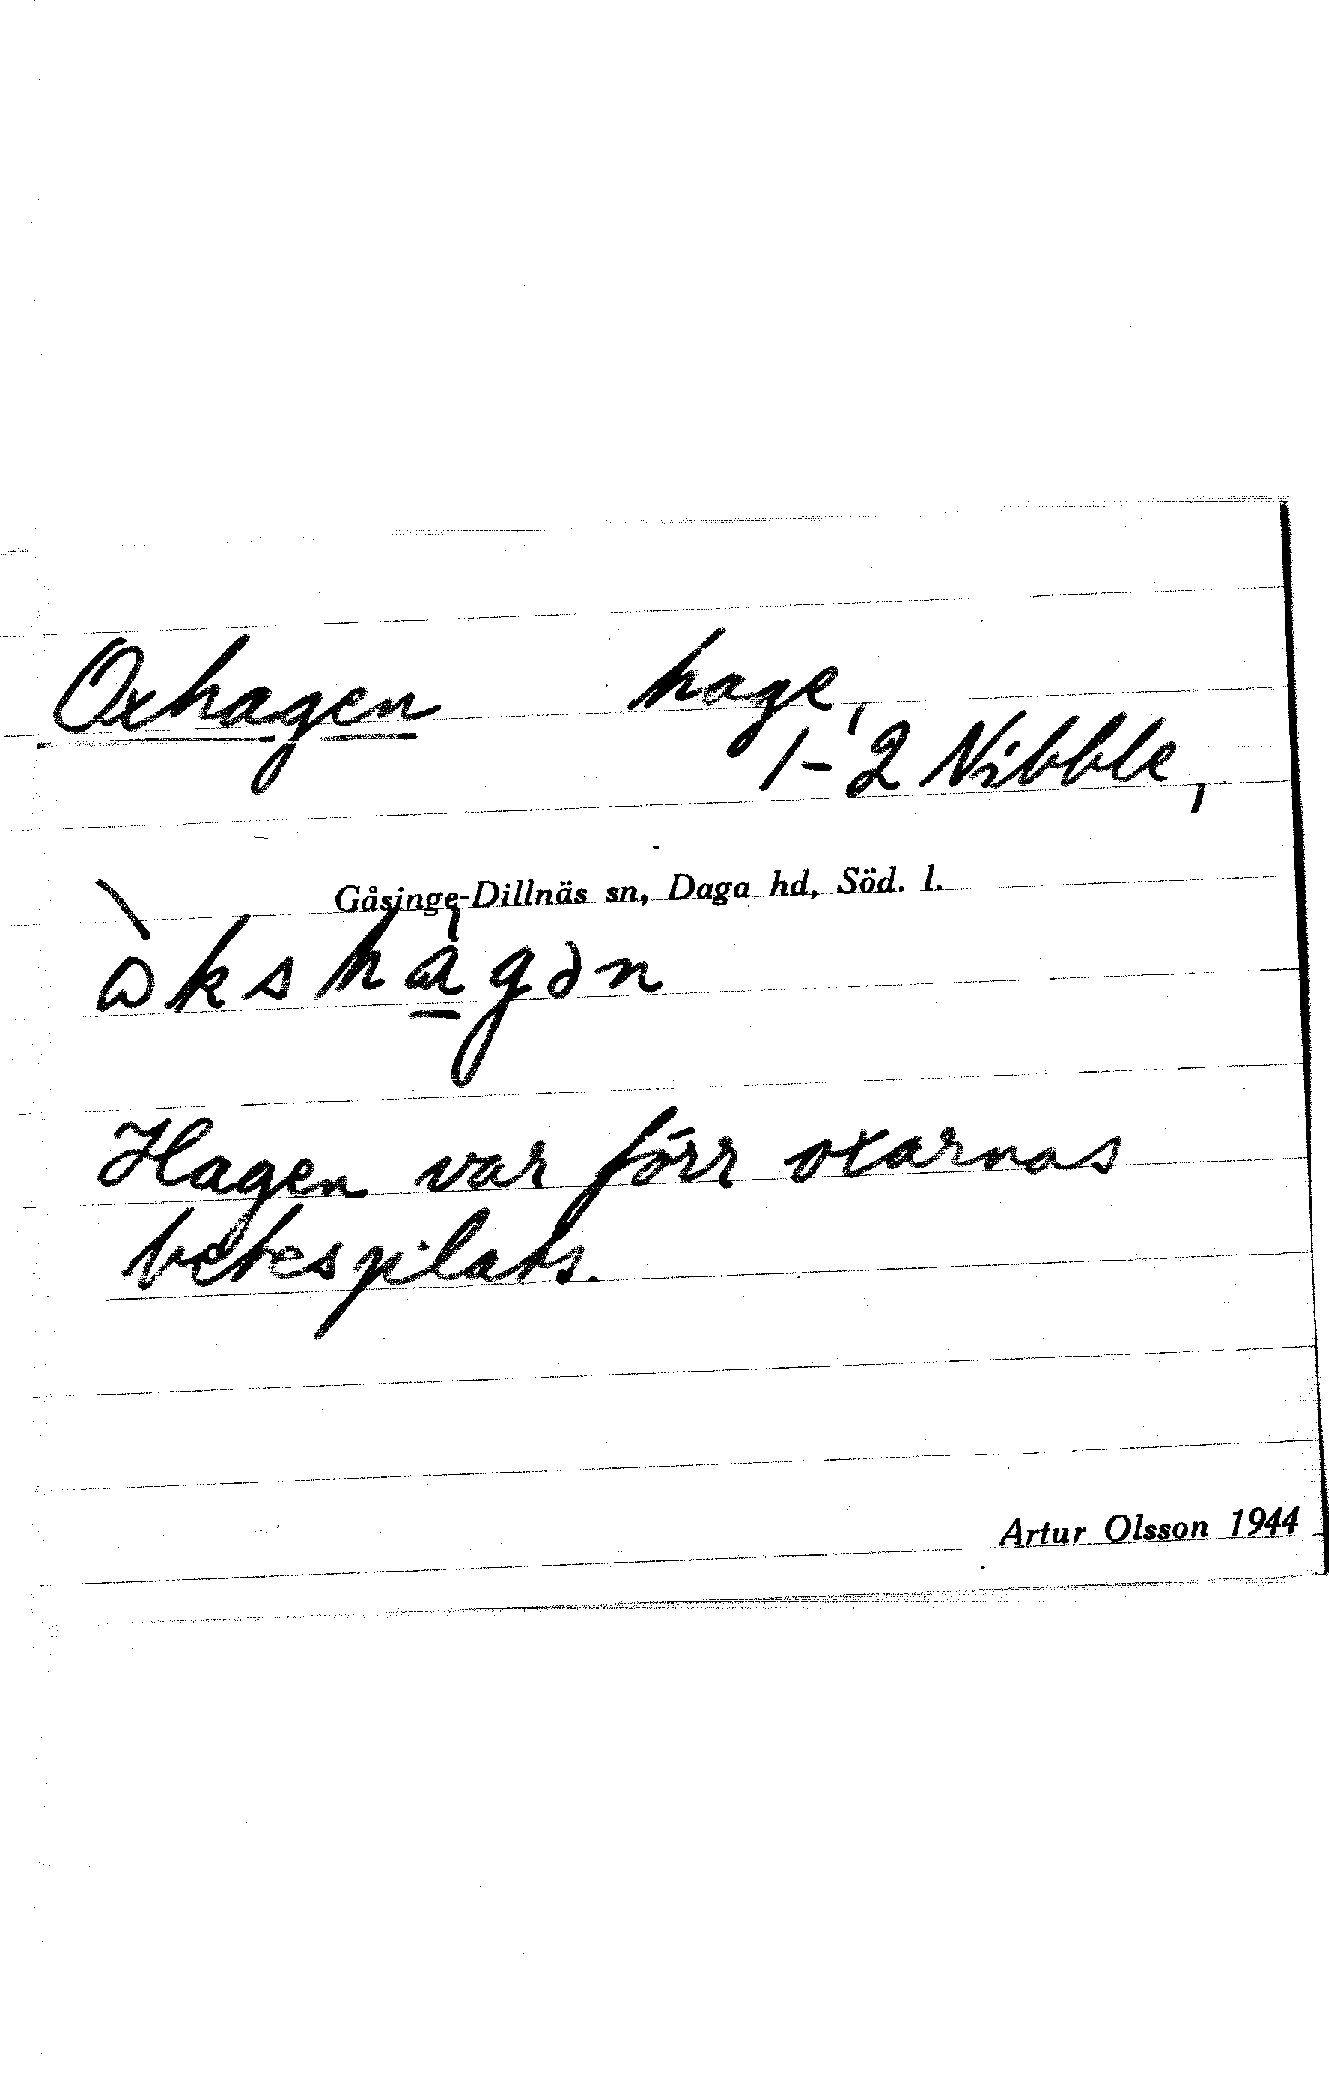 Oxhagen hage,
1-2 Nibble,
Gåsinge-Dillnäs sn, Daga hd, Söd. l.
ɷ̀kshа̱̀gən
Hagen var förr oxarnas
betesplats.
Artur Olsson 1944